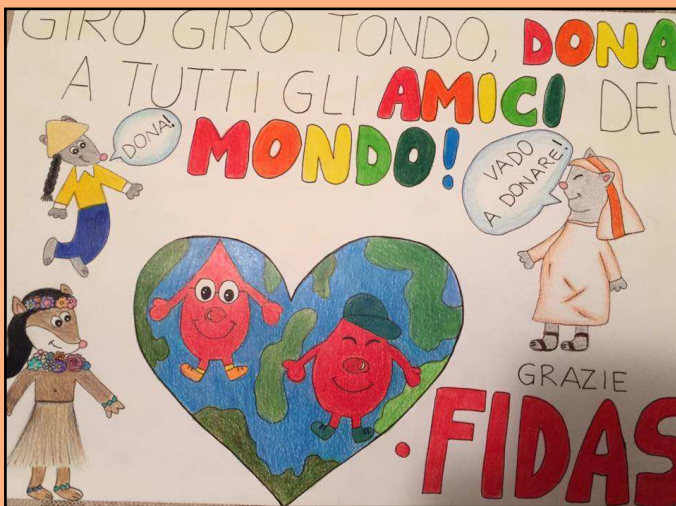 GIRO GIRO TONDO, DONA
A TUTTI GLI AMICI DEL
MONDO!
DONA!
VADO
A DONARE!
GRAZIE
FIDAS